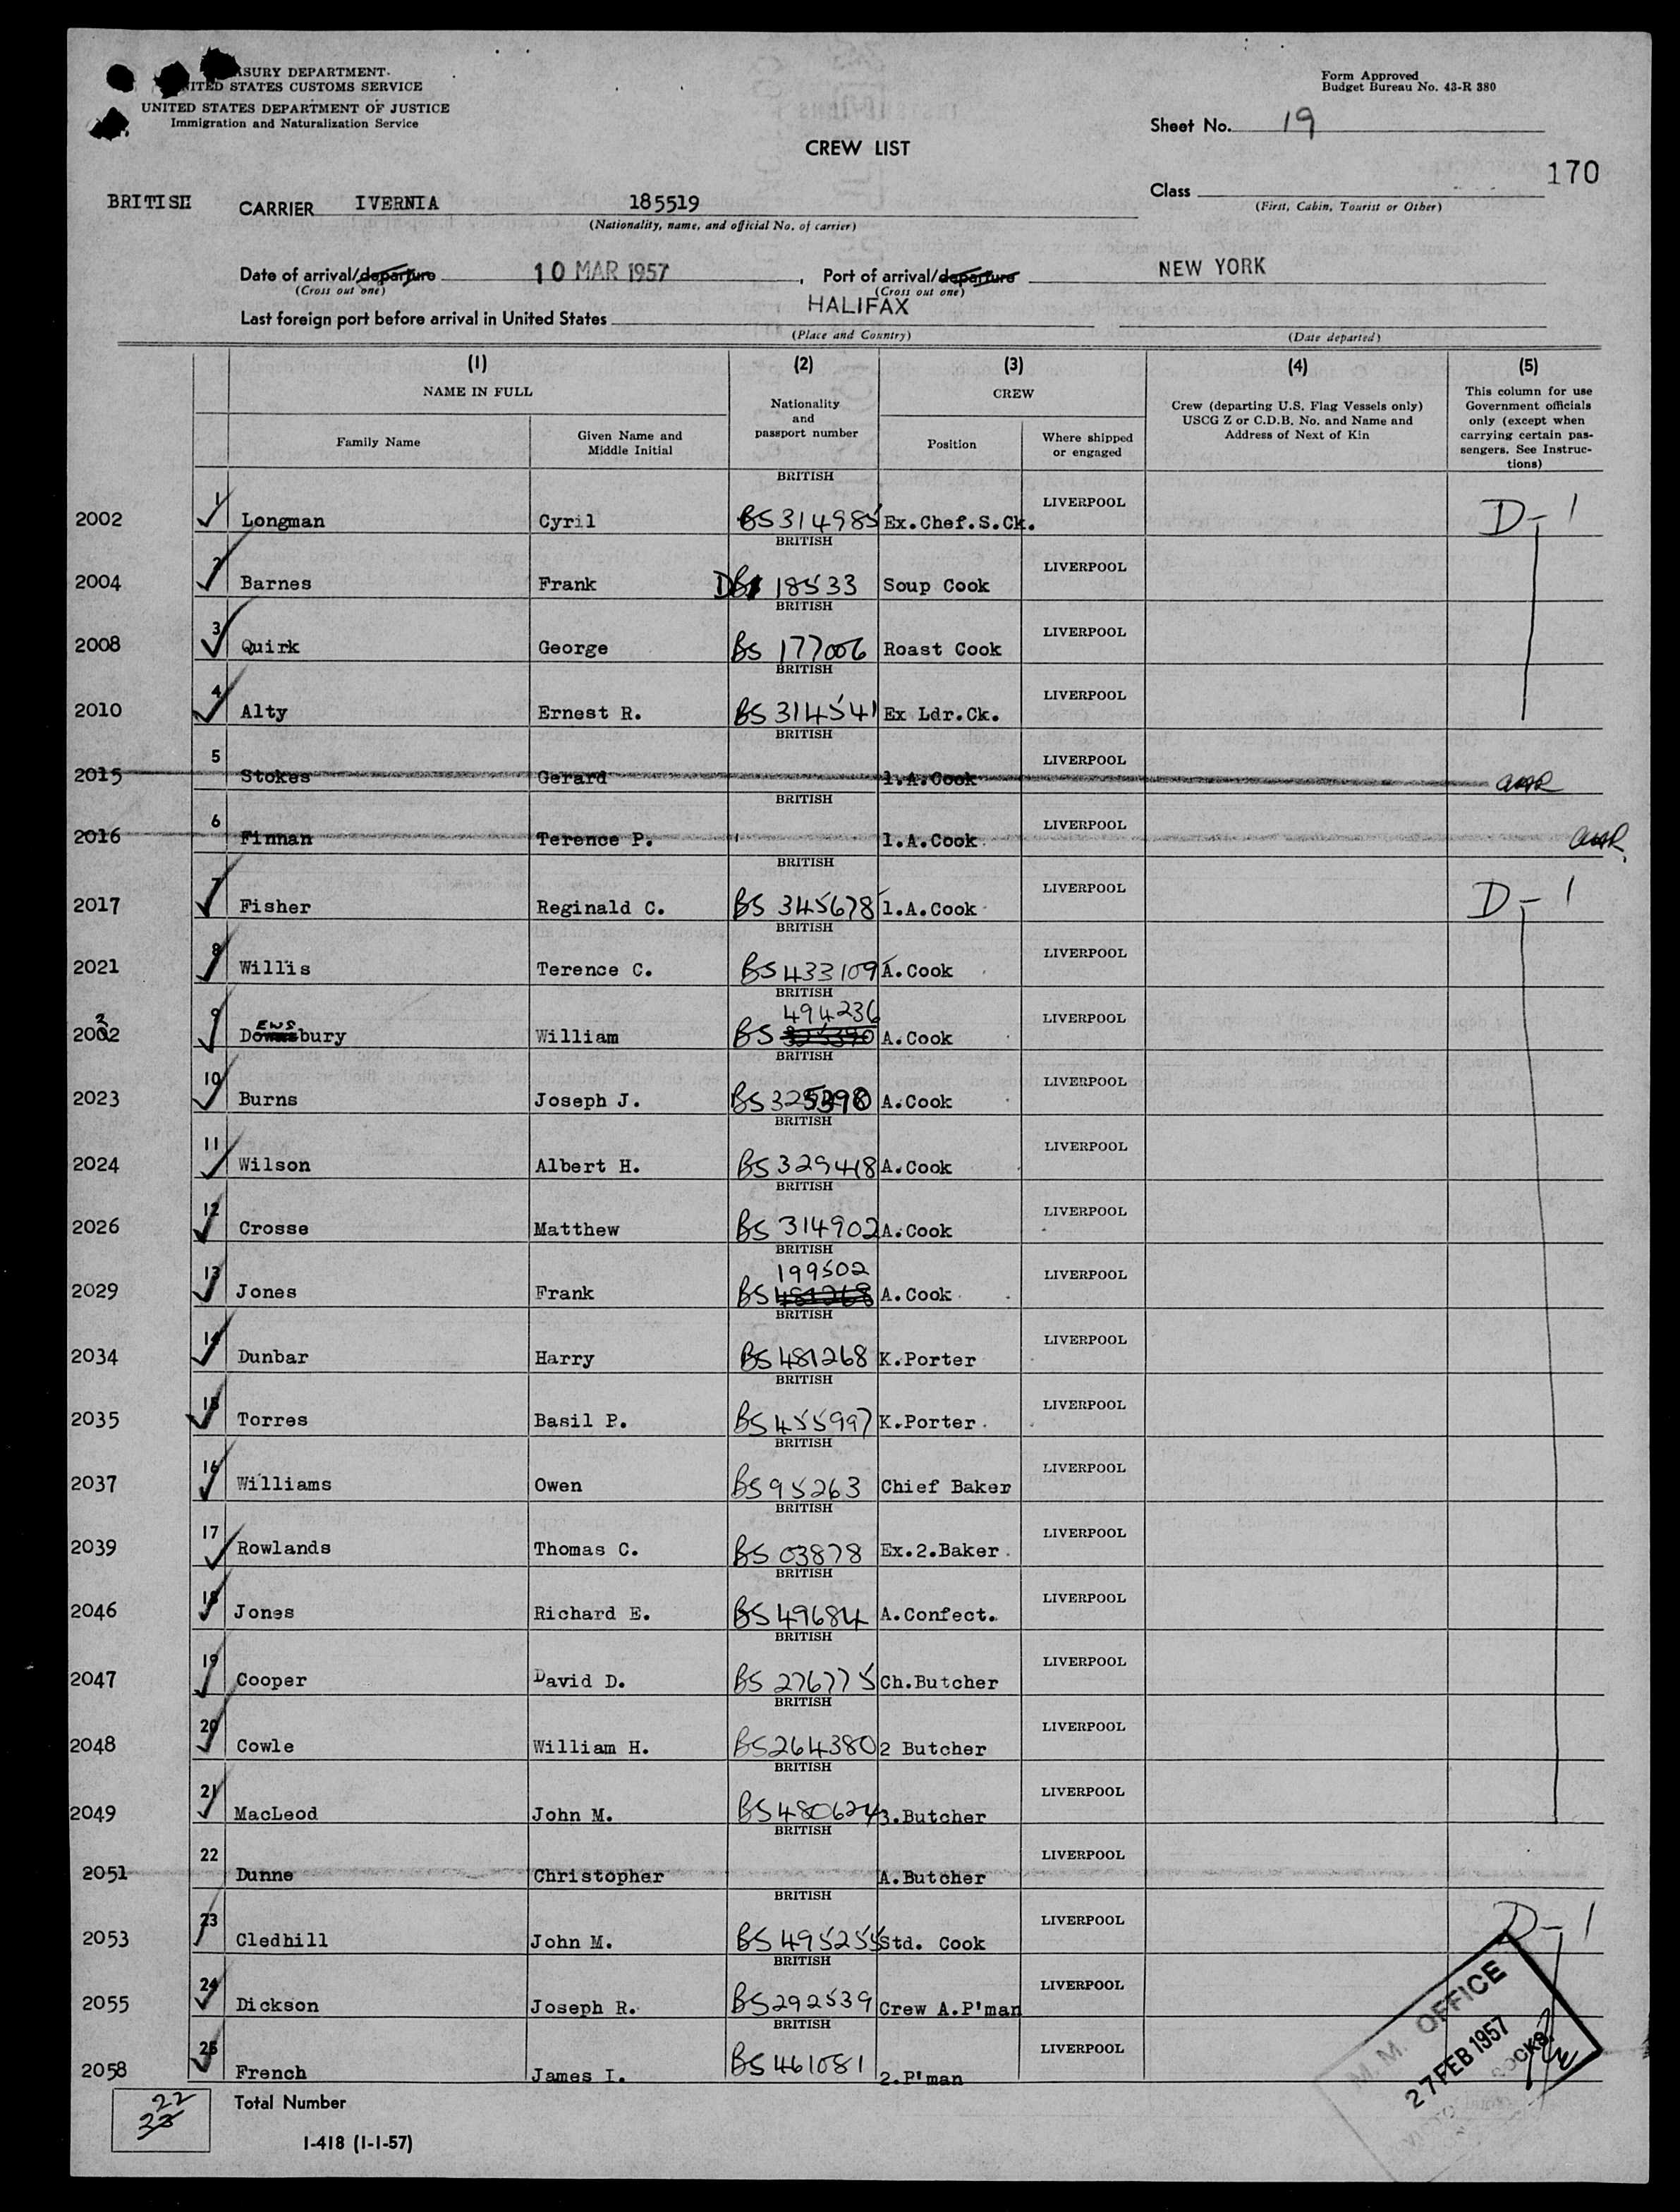 TREASURY DEPARTMENT
UNITED STATES CUSTOMS SERVICE
UNITED STATES DEPARTMENT OF JUSTICE
Immigration and Naturalization Service
Form Approved
Budget Bureau No. 43-R 380
Sheet No. 19
CREW LIST
170
Class
(First, Cabin, Tourist or Other)
BRITISH CARRIER IVERNIA 185519
(Nationality, name, and official No. of carrier)
Date of arrival/departure 10 MAR 1957, Port of arrival/departure NEW YORK
(Cross out one) (Cross out one)
Last foreign port before arrival in United States HALIFAX
(Place and Country) (Date departed)
(1) (2) (3) (4) (5)
NAME IN FULL
Family Name
Given Name and Middle Initial
Nationality and passport number
CREW
Position
Where shipped or engaged
Crew (departing U.S. Flag Vessels only) USCG Z or C.D.B. No. and Name and Address of Next of Kin
This column for use Government officials only (except when carrying certain passengers. See Instructions)
2002 1 Longman Cyril BRITISH BS 314985 Ex.Chef.S.Ck. LIVERPOOL D-1
2004 2 Barnes Frank BRITISH 18533 Soup Cook LIVERPOOL
2008 3 Quirk George BRITISH BS 177006 Roast Cook LIVERPOOL
2010 4 Alty Ernest R. BRITISH BS 314541 Ex Ldr.Ck. LIVERPOOL
2015 5 Stokes Gerard BRITISH 1.A.Cook LIVERPOOL
2016 6 Finnan Terence P. BRITISH 1.A.Cook LIVERPOOL
2017 7 Fisher Reginald C. BRITISH BS 345678 1.A.Cook LIVERPOOL D-1
2021 8 Willis Terence C. BRITISH BS 433109 A.Cook LIVERPOOL
2022 9 Dewsbury William BRITISH BS 494236 325390 A.Cook LIVERPOOL
2023 10 Burns Joseph J. BRITISH BS 325390 A.Cook LIVERPOOL
2024 11 Wilson Albert H. BRITISH BS 329418 A.Cook LIVERPOOL
2026 12 Crosse Matthew BRITISH BS 314902 A.Cook LIVERPOOL
2029 13 Jones Frank BRITISH BS 199502 481268 A.Cook LIVERPOOL
2034 14 Dunbar Harry BRITISH BS 481268 K.Porter LIVERPOOL
2035 15 Torres Basil P. BRITISH BS 455997 K.Porter LIVERPOOL
2037 16 Williams Owen BRITISH BS 95263 Chief Baker LIVERPOOL
2039 17 Rowlands Thomas C. BRITISH BS 03878 Ex.2.Baker LIVERPOOL
2046 18 Jones Richard E. BRITISH BS 49684 A.Confect. LIVERPOOL
2047 19 Cooper David D. BRITISH BS 276775 Ch.Butcher LIVERPOOL
2048 20 Cowle William H. BRITISH BS 264380 2 Butcher LIVERPOOL
2049 21 MacLeod John M. BRITISH BS 480624 3.Butcher LIVERPOOL
2051 22 Dunne Christopher BRITISH A.Butcher LIVERPOOL
2053 23 Cledhill John M. BRITISH BS 495255 Std. Cook LIVERPOOL D-1
2055 24 Dickson Joseph R. BRITISH BS 292539 Crew A.P'man LIVERPOOL
2058 25 French James I. BRITISH BS 461081 2.P'man LIVERPOOL
M. M. OFFICE
27 FEB 1957
22
Total Number
I-418 (1-1-57)